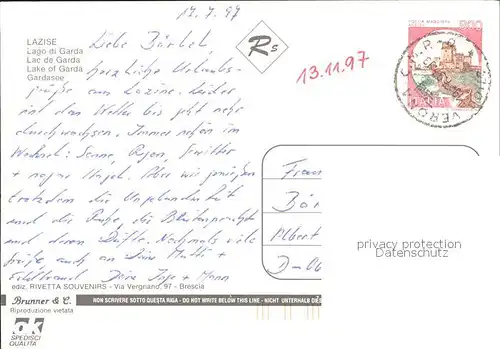 17.7.97
LAZISE
Lago di Garda
Lac de Garda
Lake of Garda
Gardasee
Rs
13.11.97
Liebe Bärbel,
herzliche Urlaubs-
grüße aus Lazise. Leider
ist das Wetter bis jetzt sehr
durchwachsen. Immer schön im
Wechsel: Sonne, Regen, Gewitter
+ sogar Hagel. Aber wir genießen
trotzdem die Unplanbarkeit
und die Ruhe, die Blütenpracht
und deren Düfte. Nochmals viele
Grüße auch an Deine Mutti +
Deine Inge + Mann
Frau
Bär
Albert
D-66
800
VERONA C.M.P.
ITALIA
privacy protection
Datenschutz
ediz. RIVETTA SOUVENIRS - Via Vergnano, 97 - Brescia
Brunner & C.
Riproduzione vietata
NON SCRIVERE SOTTO QUESTA RIGA - DO NOT WRITE BELOW THIS LINE - NICHT UNTERHALB DIES
ok
SPEDISCI
QUALITÀ